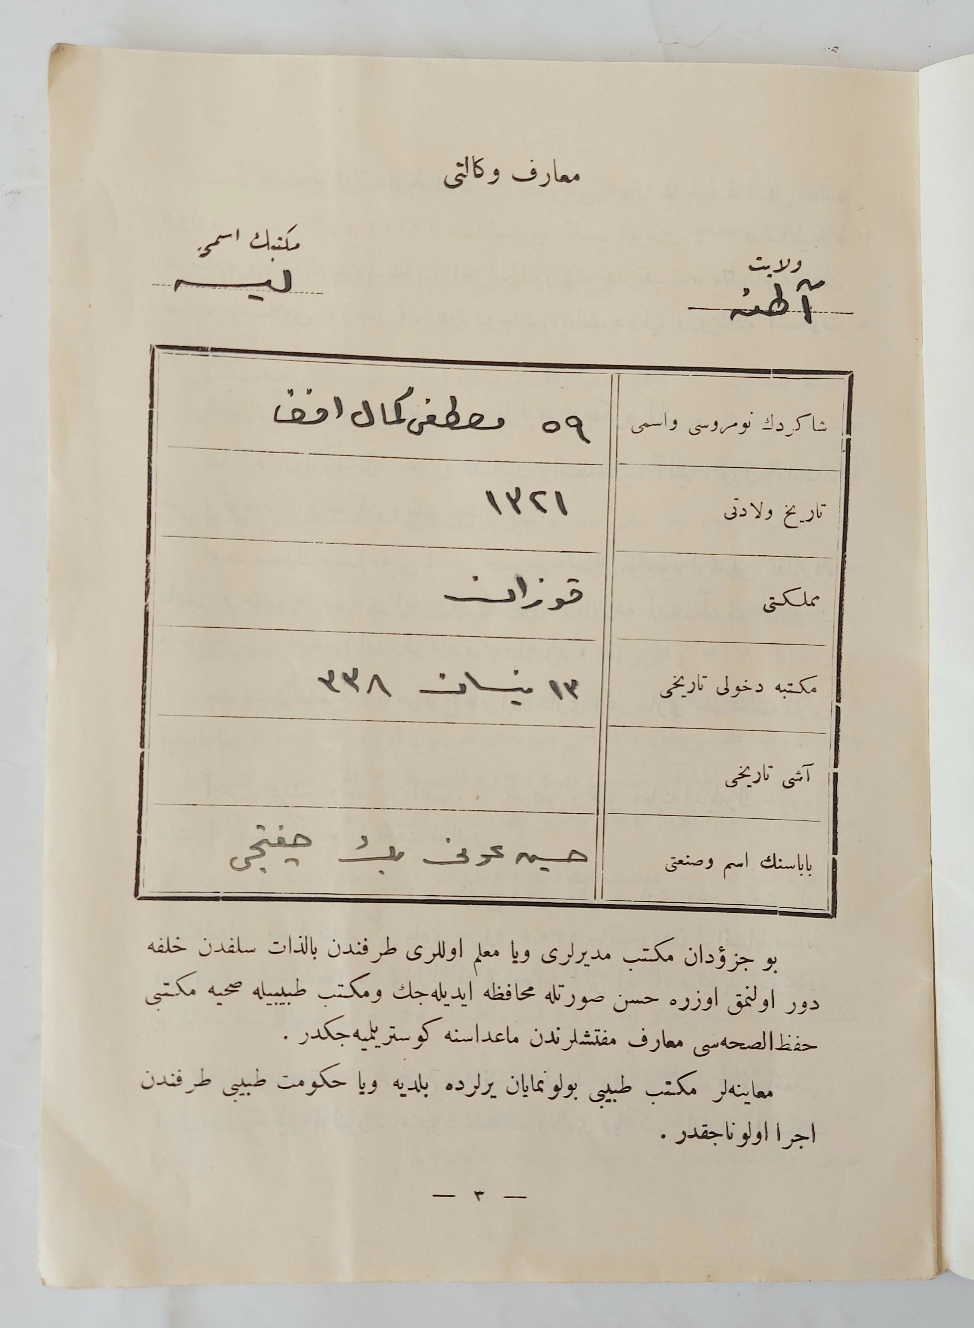 معارف وكالتی
ولايت
آطنه
مكتبك اسمی
ليسه
شاكردك نومروسی واسمی
٥٩ مصطفی كمال افندی
تاريخ ولادتی
١٣٢١
مملكتی
قوزان
مكتبه دخولی تاريخی
١٣ نيسان ٣٣٨
آشی تاريخی
باباسنك اسم وصنعتی
حسين عونی بك چفتجی
بو جزؤدان مكتب مديرلری ويا معلم اوللری طرفندن بالذات سلفدن خلفه
دور اولنمق اوزره حسن صورتله محافظه ايديله‌جك ومكتب طبيبيله صحيه مكتبی
حفظ‌الصحه‌سی معارف مفتشلرندن ماعداسنه كوستريلميه‌جكدر .
معاينه‌لر مكتب طبيبی بولونمايان يرلرده بلديه ويا حكومت طبيبی طرفندن
اجرا اولوناجقدر .
— ٣ —